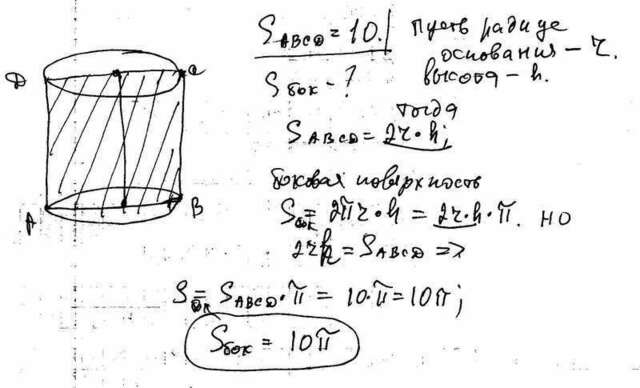 D
C
A
B
S_ABCD = 10.
Пусть радиус
основания – r.
высота – h.
S_бок – ?
тогда
S_ABCD = 2r·h;
боковая поверхность
S_бок = 2πr·h = 2r·h·π. но
2rh = S_ABCD =>
S_б = S_ABCD·π = 10·π = 10π;
S_бок = 10π